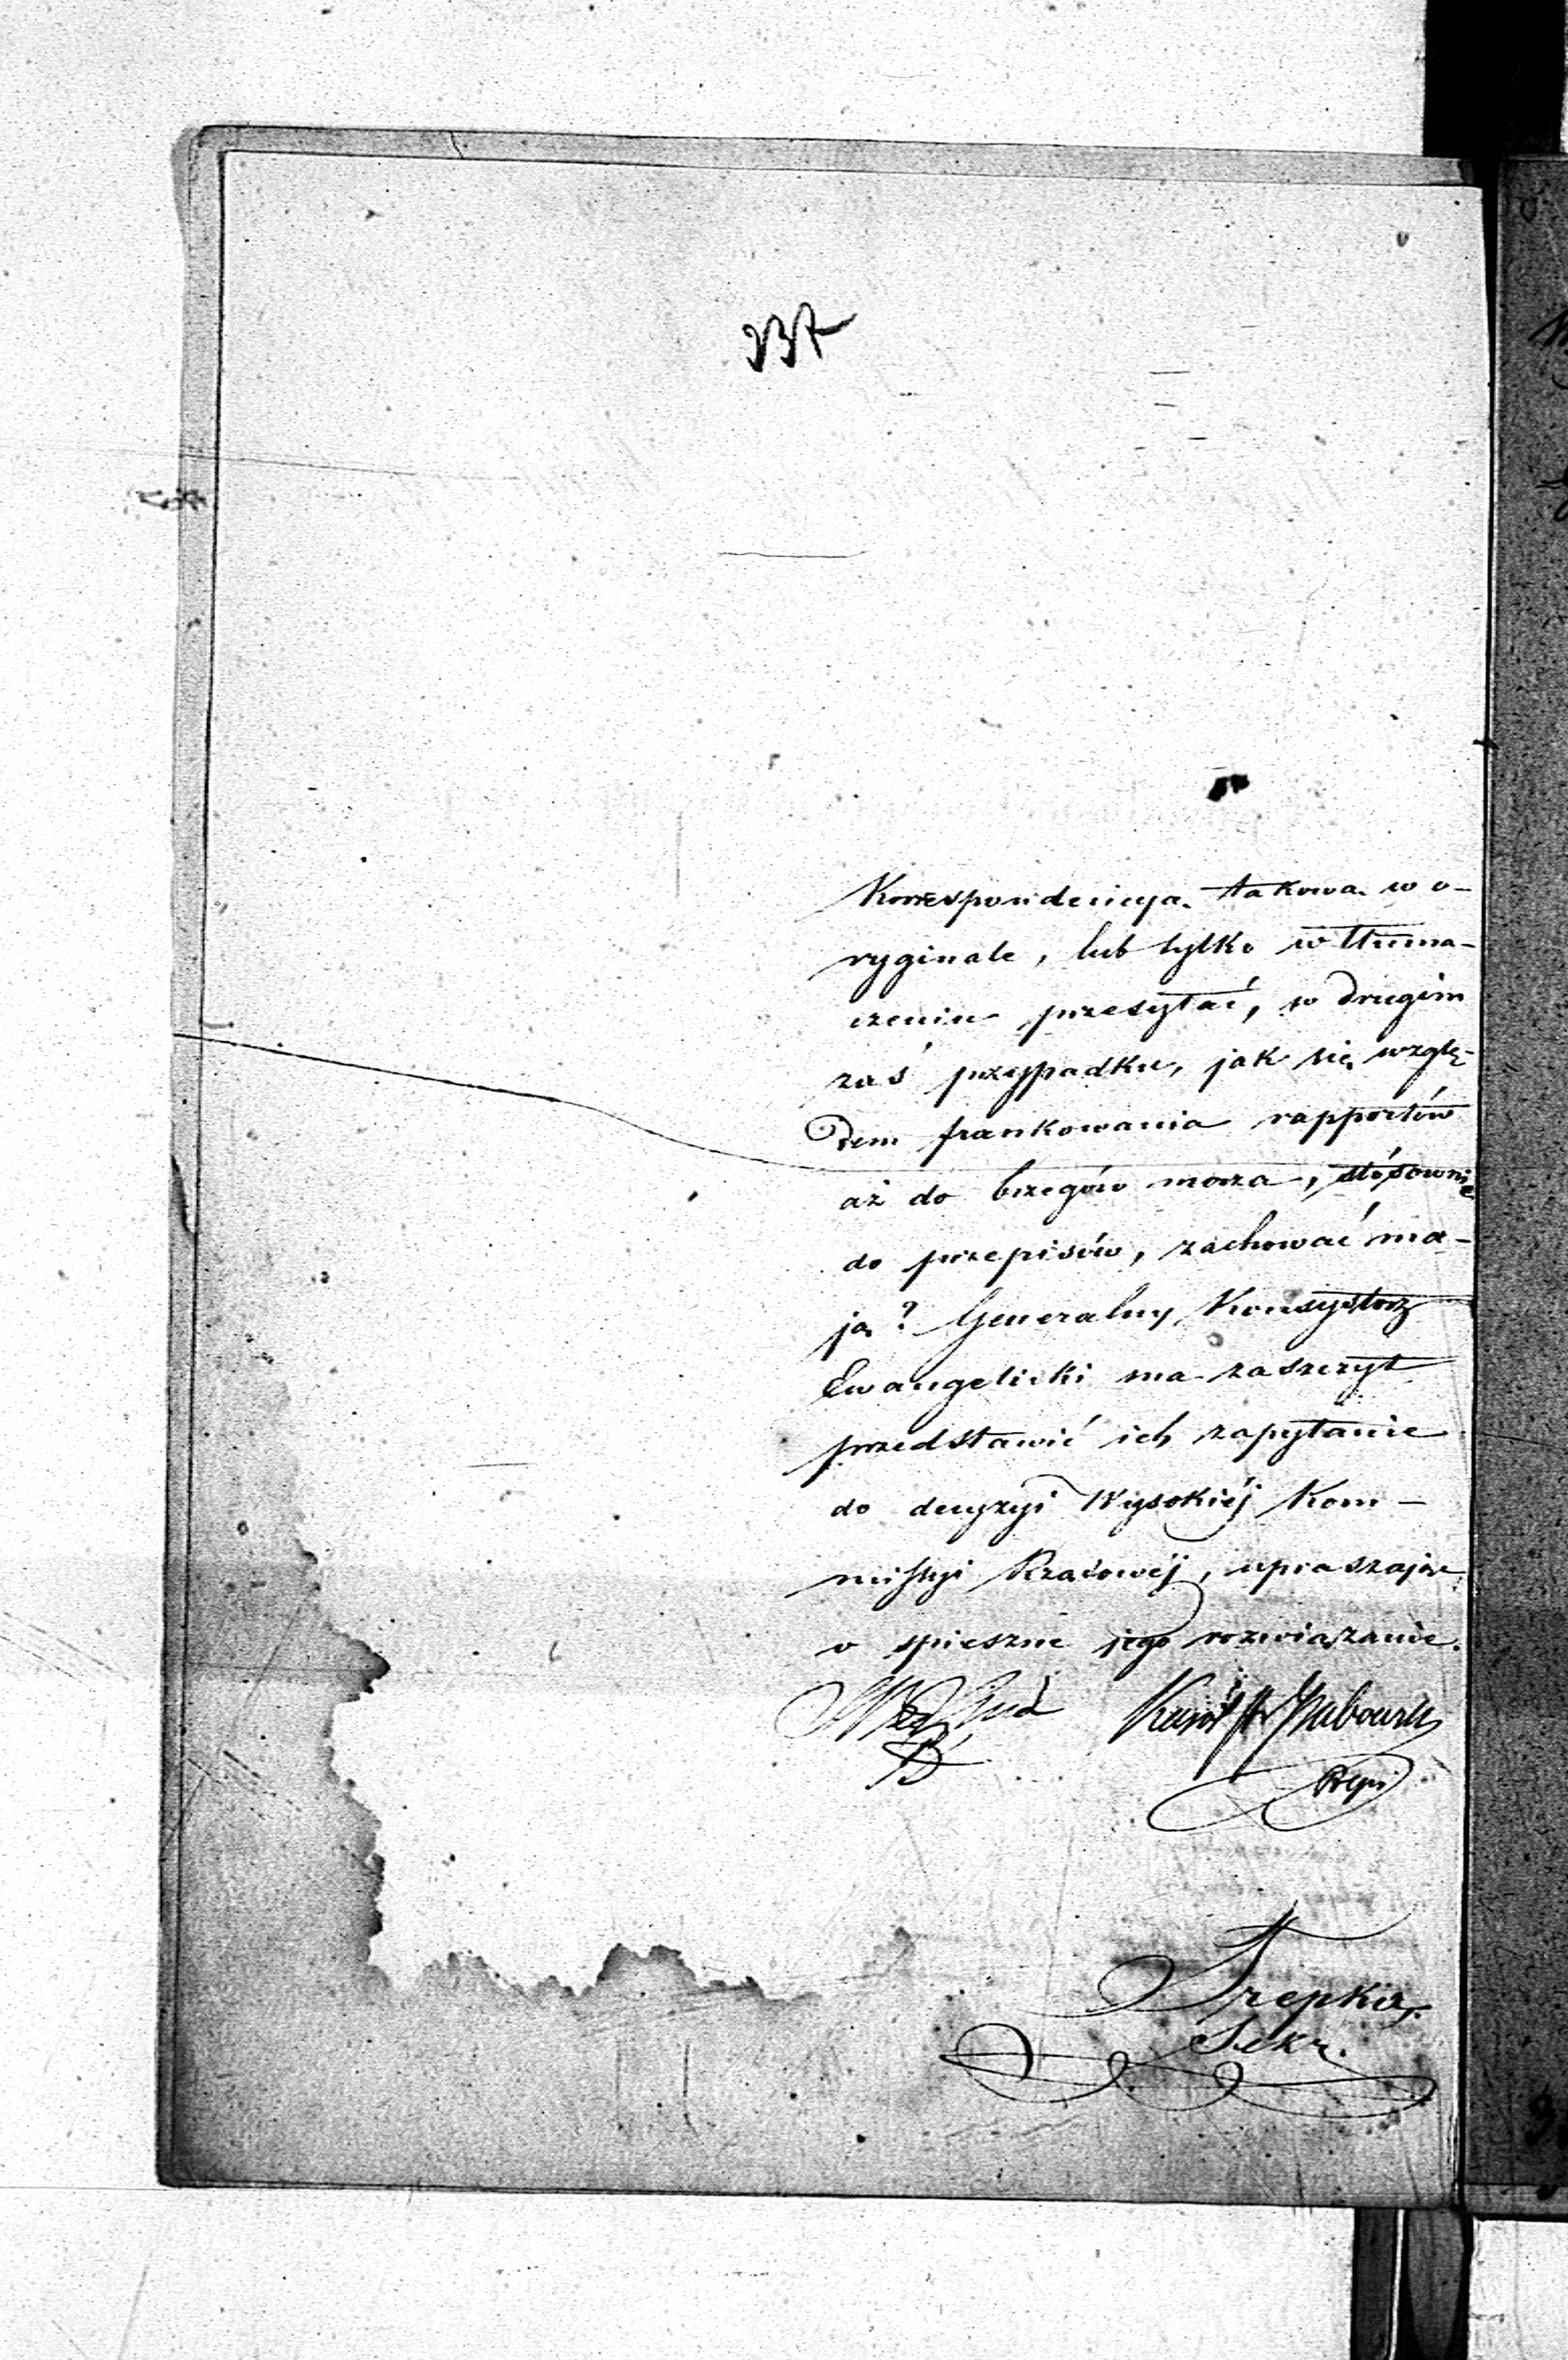 337
Korrespondencya takowa w o-
ryginale, lub tylko w tłuma-
czeniu przesyłać, w drugim
zaś przypadku, jak się wzglę-
dem frankowania rapportów
aż do brzegów morza, stósownie
do przepisów, zachować ma-
ją? Generalny Konsystorz
Ewangelicki ma zaszczyt
przedstawić ich zapytanie
do decyzyi Wysokiéj Kom-
missyi Rządowéj, upraszając
o spieszne jego rozwiązanie.
Karól
Trepka,
Sekr.